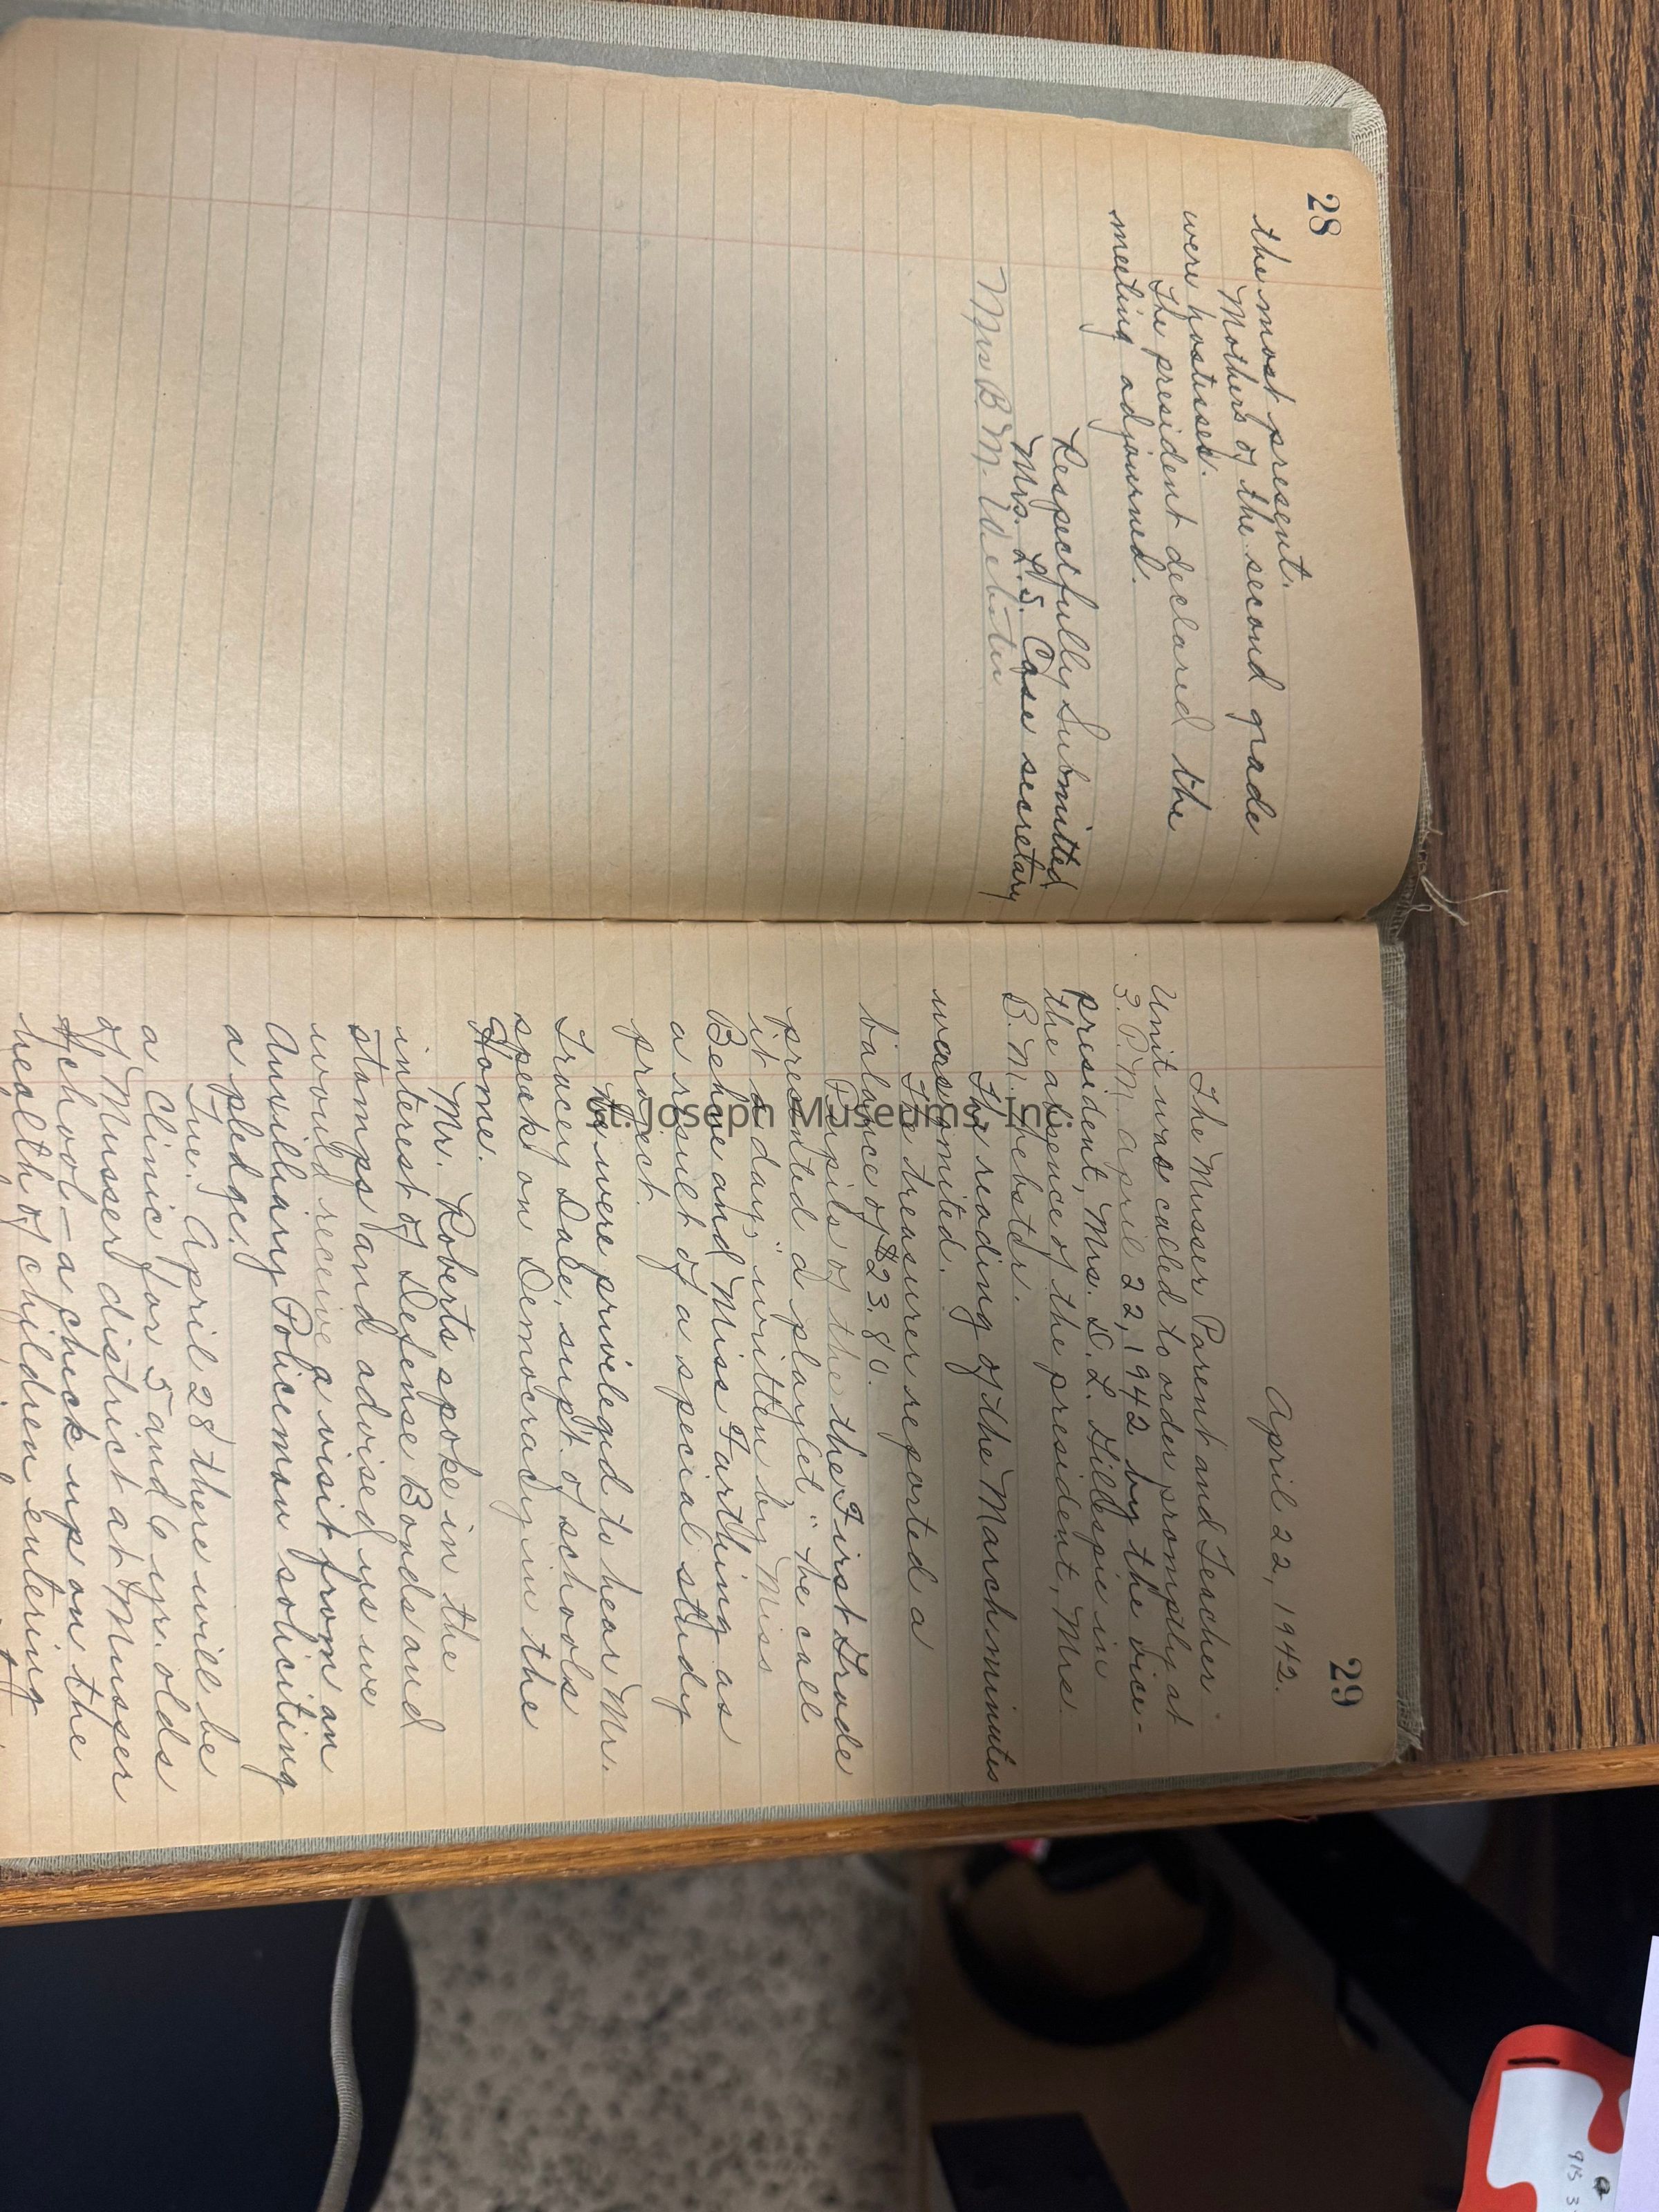 28
the most present.
Mothers of the second grade
were hostisses.
The president declared the
meeting adjourned.
Respectfully Submitted
Mrs. L. S. Case secretary
Mrs B. M. Webster
29
April 22, 1942.
The Musser Parent and Teacher
Unit was called to order promptly at
3. P. M. April 22, 1942 by the vice-
president, Mrs. D. L. Gillespie in
the absence of the president, Mrs.
B. M. Webster.
The reading of the March minutes
was omited.
The treasurer reported a
balance of $23.80.
Pupils of the the First Grade
presented a playlet "the call
it a day," written by Miss
Behne and Miss Farthing as
a result of a special study
project.
We were privileged to hear Mr.
Tracy Dale, sup't. of schools
speak on Democracy in the
Home.
Mr. Roberts spoke in the
interest of Defense Bonds and
stamps and advised us we
would receive a visit from an
Auxilliary Policeman soliciting
a pledge.
Tue. April 28 there will be
a clinic for 5 and 6 yr. olds
of Musser district at Musser
School - a check up on the
health of children entering
St. Joseph Museums, Inc.
915 3